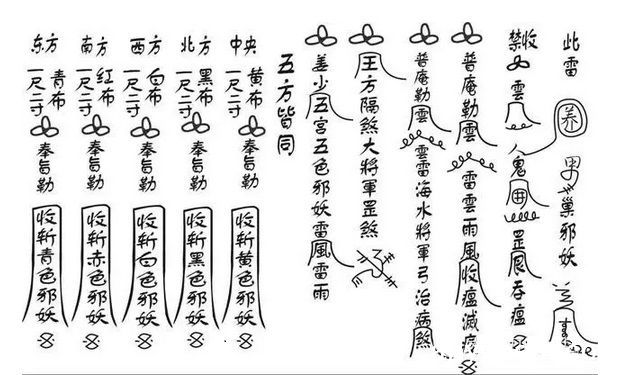 此雷
养
男
巢邪妖
禁收
雲
人鬼
罡
吞瘟
普庵勅雲
雷雲雨風收瘟滅瘟
普庵勅雲
雲雷海水將軍弓治病煞
王方隔煞大將軍罡煞
姜少五宮五色邪妖雷風雷雨
五方皆同
中央
黄布
一尺二寸
奉旨勅
收斩黄色邪妖
北方
黑布
一尺二寸
奉旨勅
收斩黑色邪妖
西方
白布
一尺二寸
奉旨勅
收斩白色邪妖
南方
红布
一尺二寸
奉旨勅
收斩赤色邪妖
东方
青布
一尺二寸
奉旨勅
收斩青色邪妖